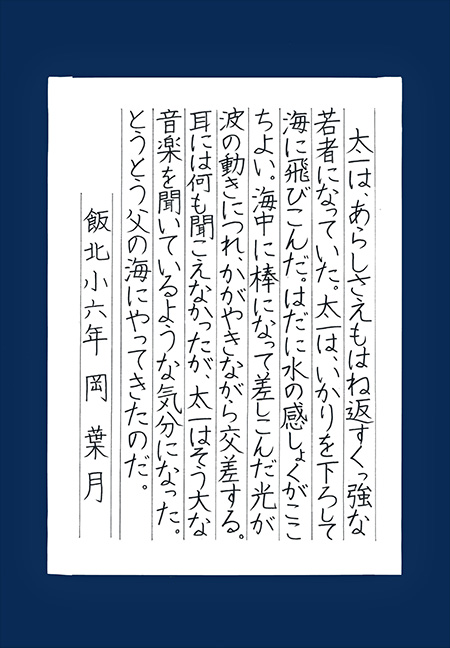 太一は、あらしさえもはね返すくっ強な
若者になっていた。太一は、いかりを下ろして
海に飛びこんだ。はだに水の感しょくがここ
ちよい。海中に棒になって差しこんだ光が
波の動きにつれ、かがやきながら交差する。
耳には何も聞こえなかったが、太一はそう大な
音楽を聞いているような気分になった。
とうとう父の海にやってきたのだ。
飯北小六年 岡 葉月